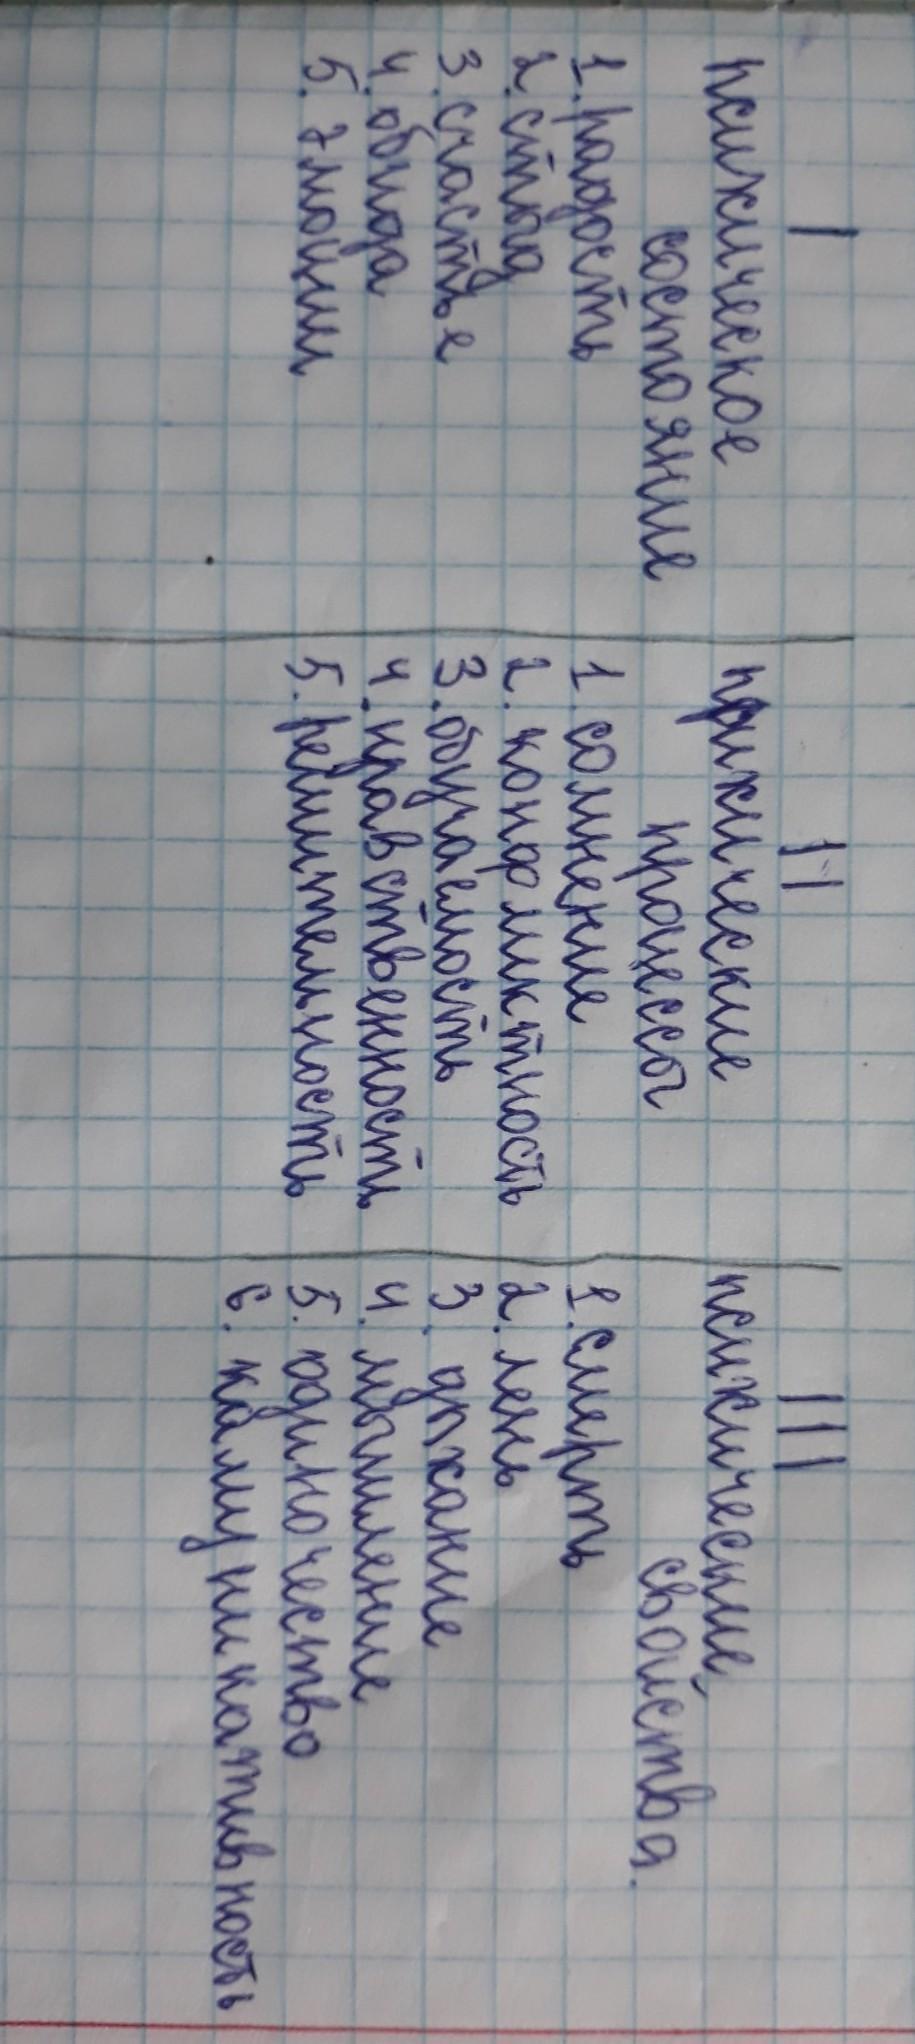 I
психическое
состояние
1. радость
2. стыд
3. счастье
4. обида
5. эмоции
II
психические
процессы
1. сомнение
2. конфликтность
3. обучаемость
4. нравственность
5. решительность
III
психические
свойства.
1. смерть
2. лень
3. дыхание
4. мышление
5. одиночество
6. камуникативность